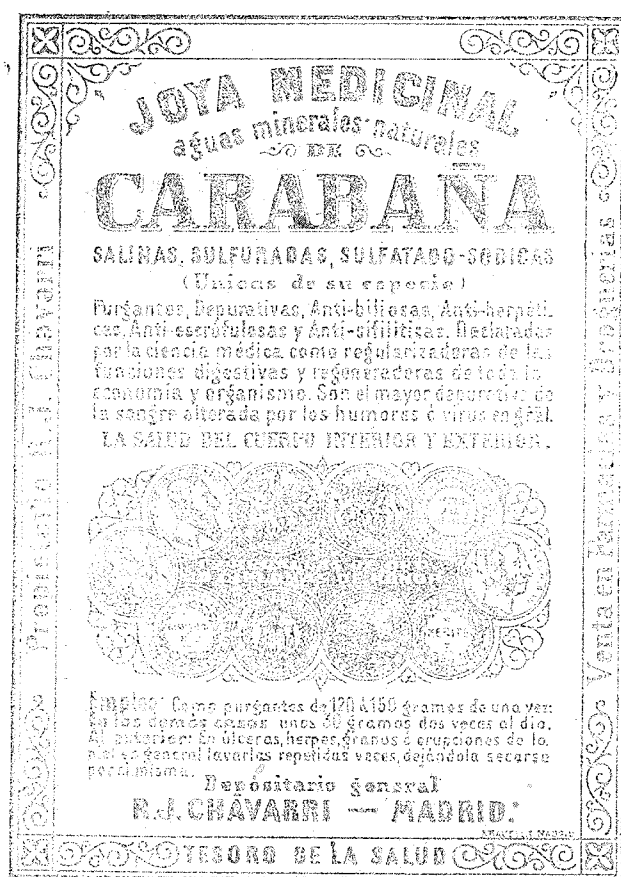 JOYA MEDICINAL
aguas minerales naturales
DE
CARABAÑA
SALINAS, SULFURADAS, SULFATADO-SODICAS
(Unicas de su especie)
Purgantes, Depurativas, Anti-biliosas, Anti-herpéti-
cas, Anti-escrófulosas y Anti-sifilíticas. Declaradas
por la ciencia médica como regularizadoras de las
funciones digestivas y regeneradoras de toda la
economía y organismo. Son el mayor depurativo de
la sangre alterada por los humores ó virus en gral.
LA SALUD DEL CUERPO INTERIOR Y EXTERIOR.
Empleo: Como purgantes de 120 á 150 gramos de una vez:
En los demás casos unos 30 gramos dos veces al día.
Al exterior: En úlceras, herpes, granos ó erupciones de la
piel en general lavarlas repetidas veces, dejándola secarse
por sí misma.
Depositario general
R.J. CHAVARRI — MADRID.
TESORO DE LA SALUD
Propietario R.J. Chavarri
Venta en Farmacias y Droguerías